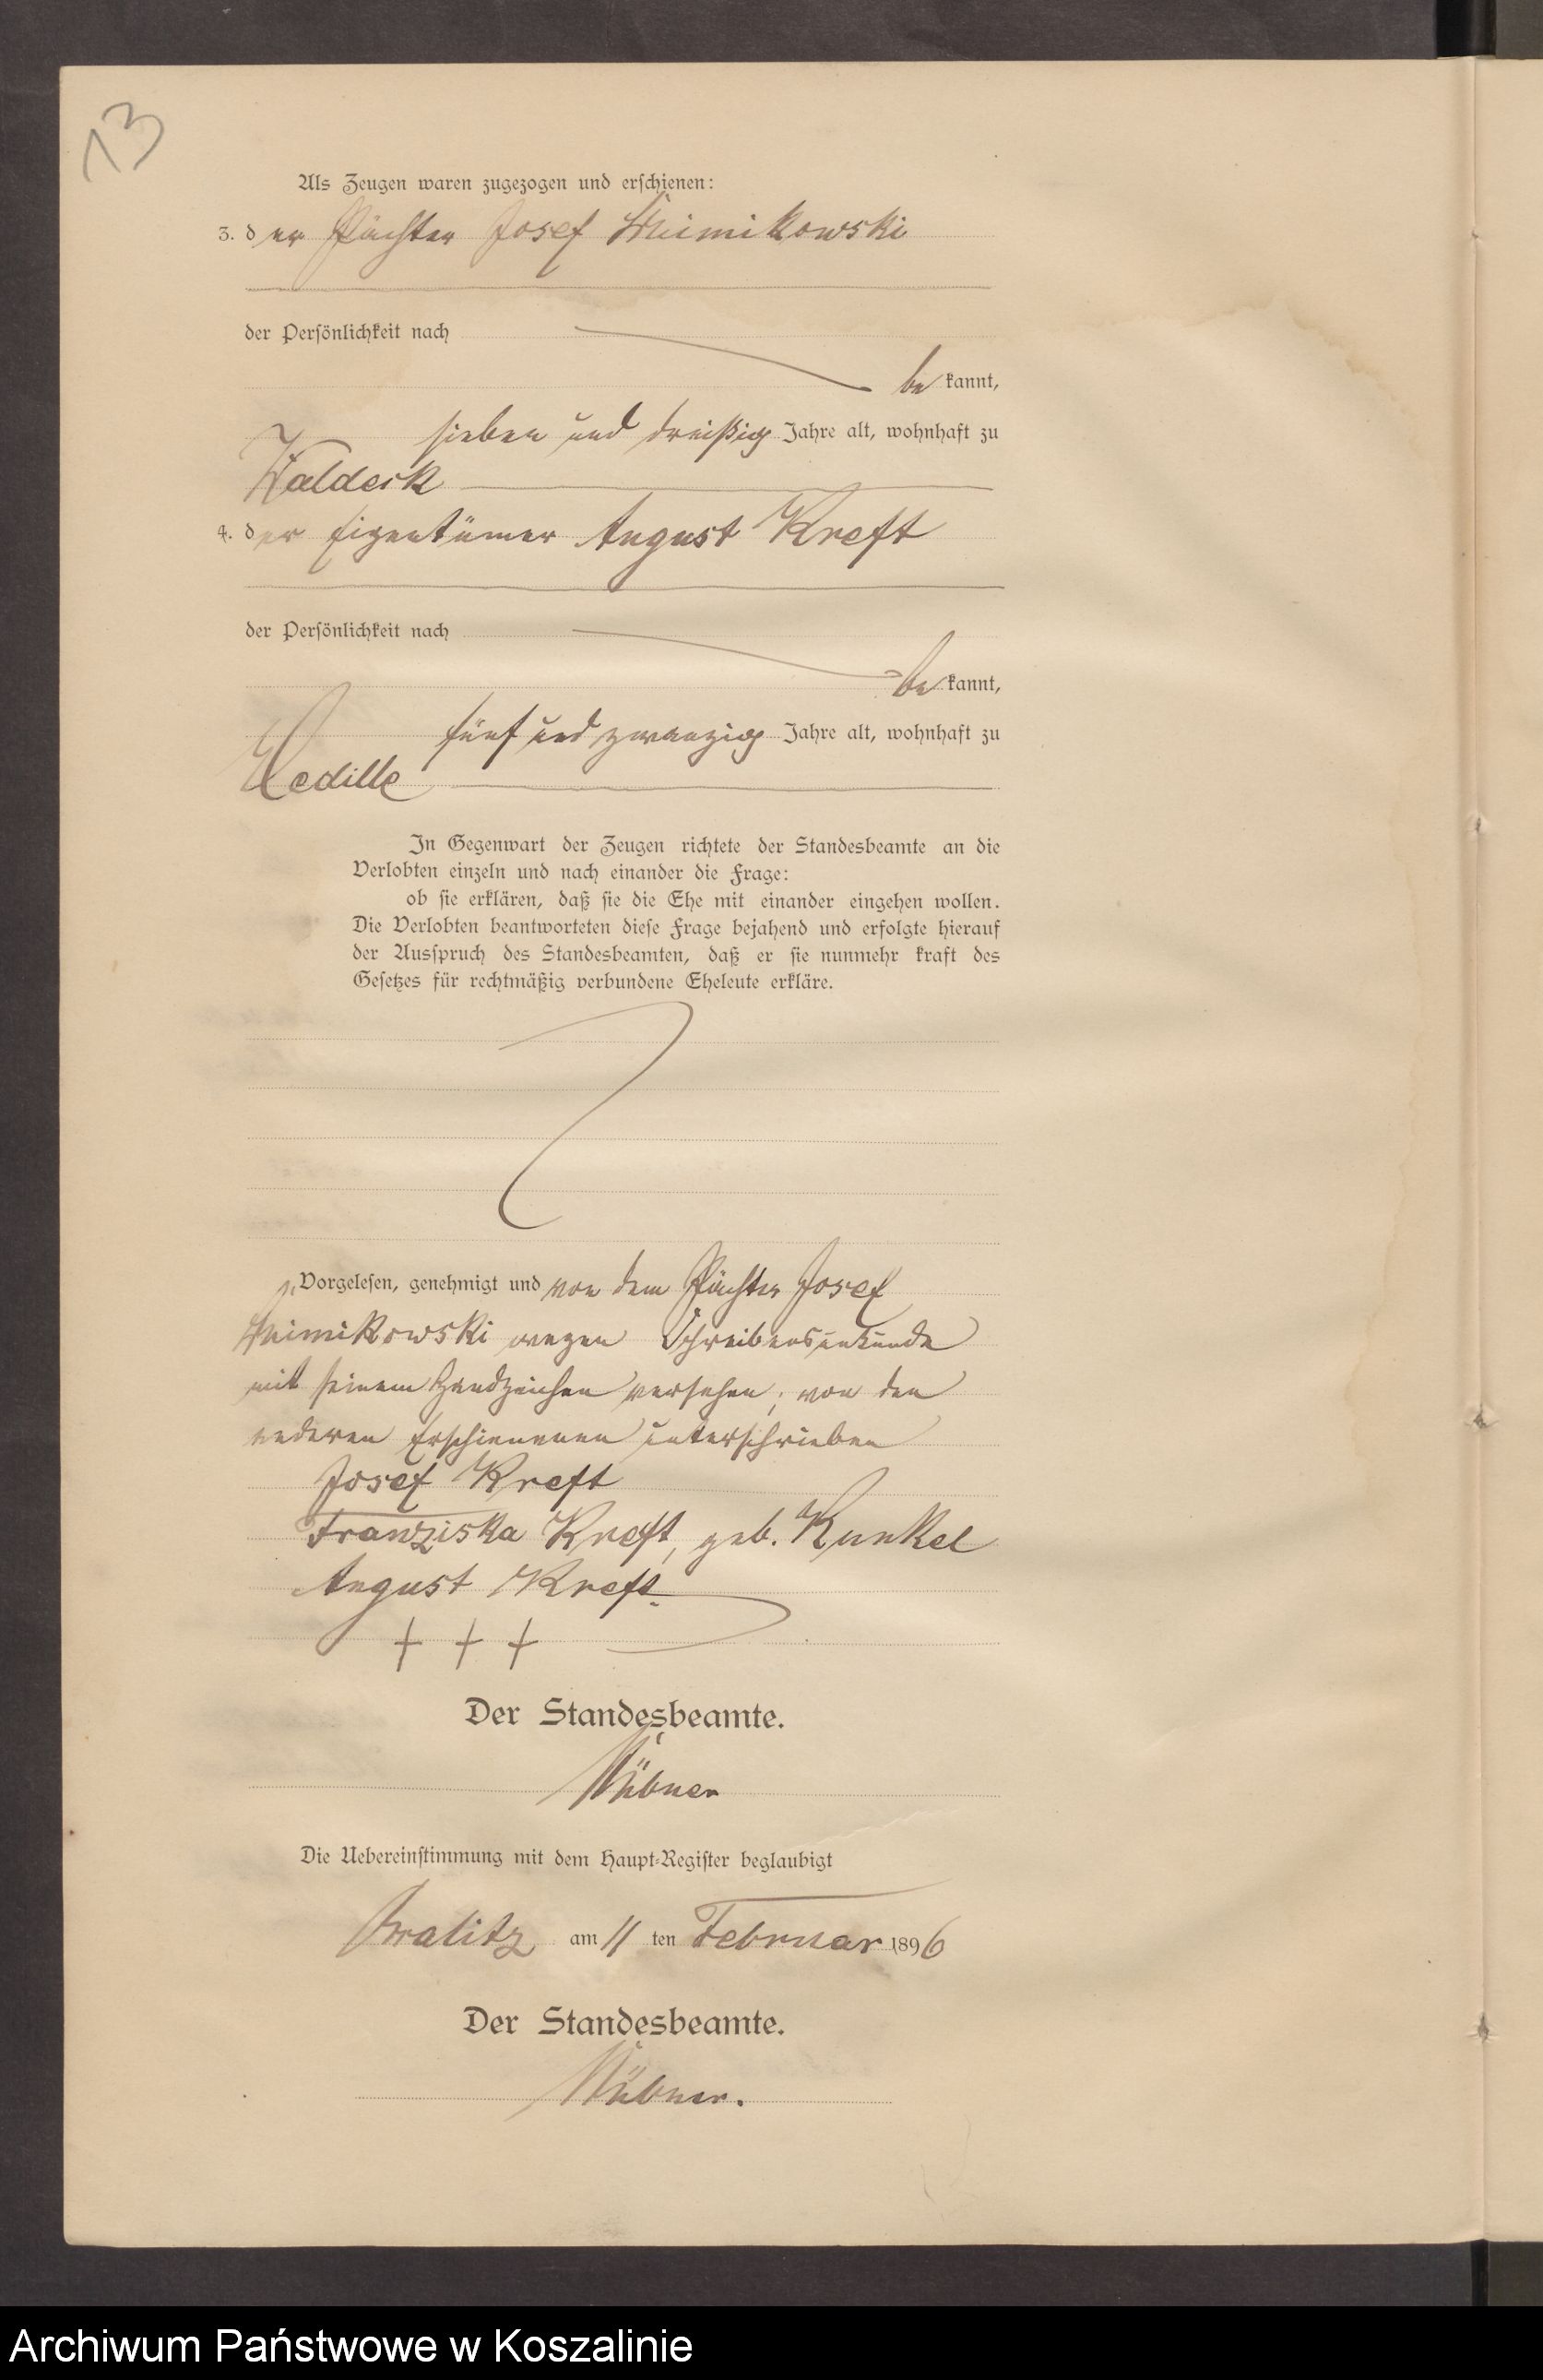 13
Als Zeugen waren zugezogen und erschienen:
3. der Pächter Josef
der Persönlichkeit nach
bekannt,
sieben und dreißig Jahre alt, wohnhaft zu
Waldeck
4. der Eigentümer August Kreft
der Persönlichkeit nach
bekannt,
fünf und zwanzig Jahre alt, wohnhaft zu
In Gegenwart der Zeugen richtete der Standesbeamte an die
Verlobten einzeln und nach einander die Frage:
ob sie erklären, daß sie die Ehe mit einander eingehen wollen.
Die Verlobten beantworteten diese Frage bejahend und erfolgte hierauf
der Ausspruch des Standesbeamten, daß er sie nunmehr kraft des
Gesetzes für rechtmäßig verbundene Eheleute erkläre.
Vorgelesen, genehmigt und von dem Pächter Josef
wegen Schreibensunkunde
mit seinem Handzeichen versehen, von den
anderen Erschienenen unterschrieben
Josef Kreft
Franziska Kreft, geb. Kunkel
August Kreft.
+ + +
Der Standesbeamte.
Die Uebereinstimmung mit dem Haupt-Register beglaubigt
am 11 ten Februar 1896
Der Standesbeamte.
Archiwum Państwowe w Koszalinie